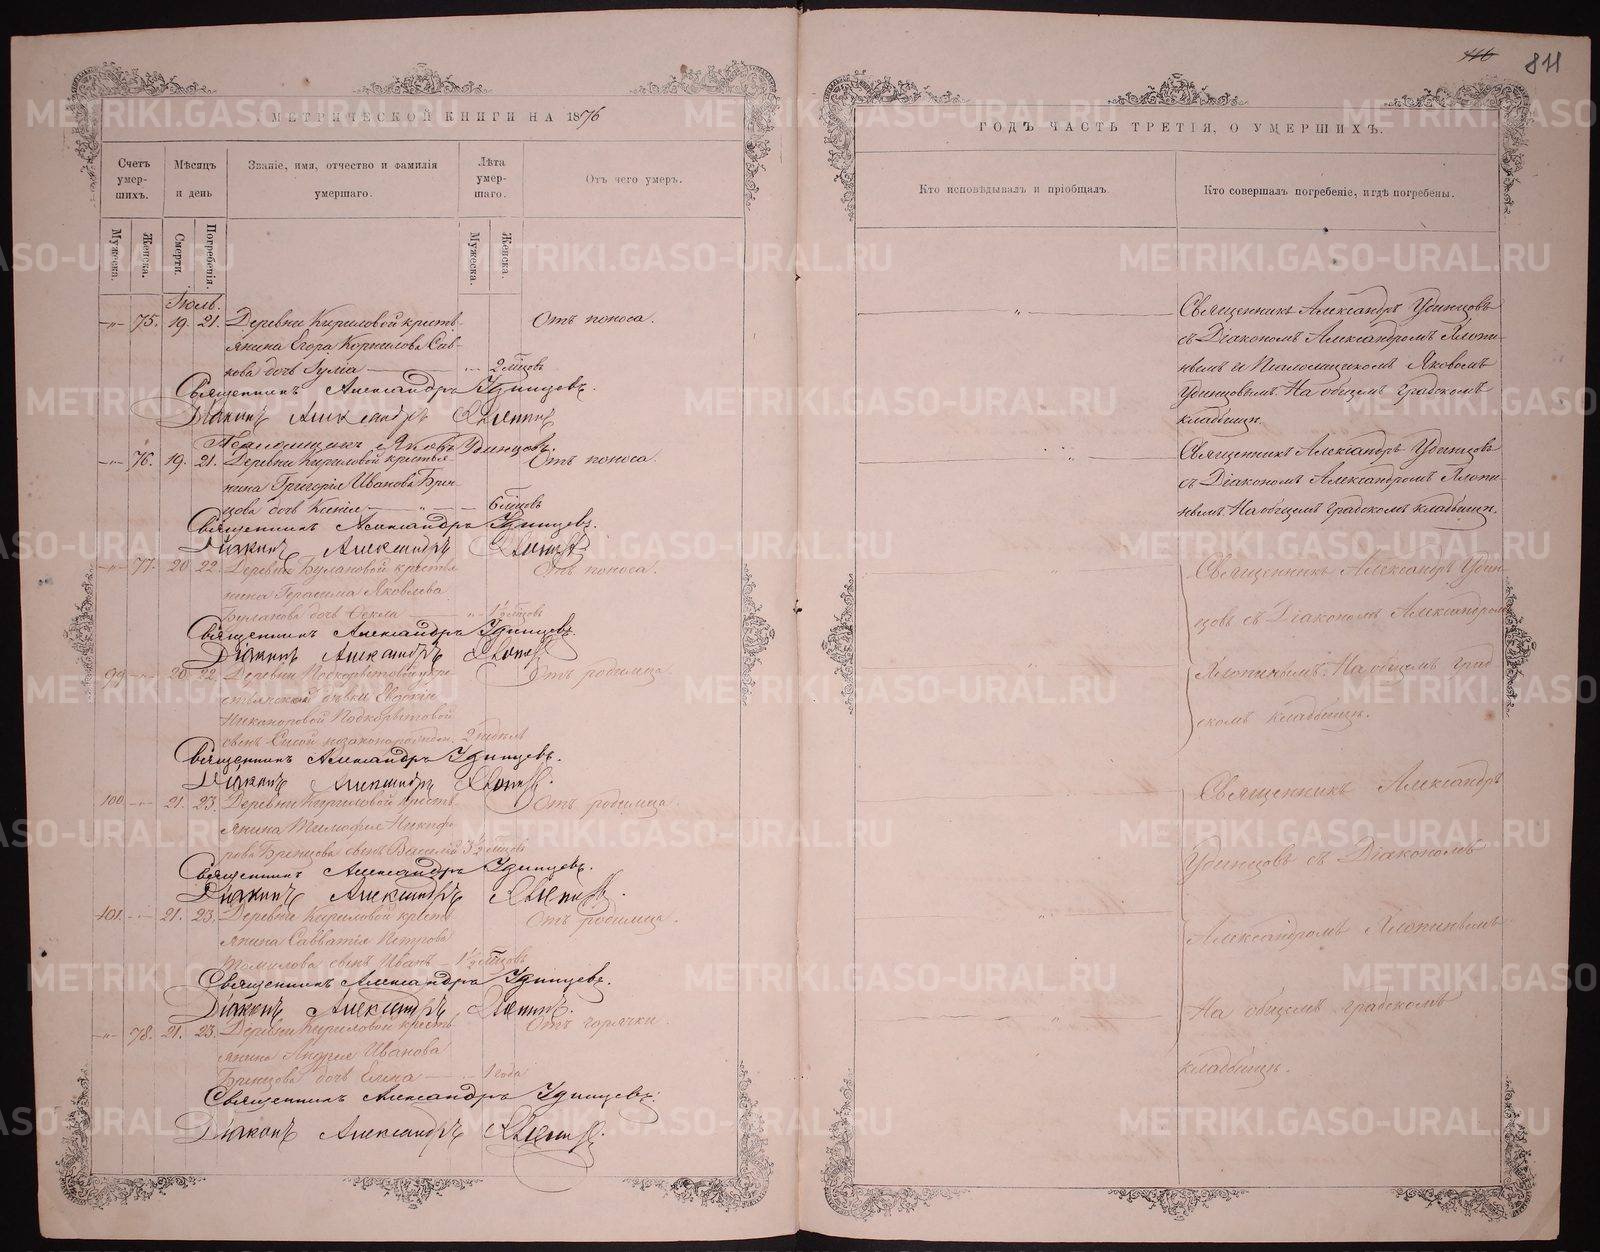 МЕТРИЧЕСКОЙ КНИГИ НА 1876
Счетъ умер-шихъ.
Мѣсяцъ и день
Званіе, имя, отчество и фамилія умершаго.
Лѣта умер-шаго.
Отъ чего умеръ.
Мужеска.
Женска.
Смерти.
Погребенія.
Мужеска.
Женска.
Іюль.
75. 19. 21. Деревни Кириловой кресть-
янина Егора Корнилова Сав-
кова дочь 2 мѣсцовъ
Отъ поноса.
Священникъ Александръ Удинцовъ.
Діаконъ Александръ Хлопинъ
Псаломщикъ Яковъ Удинцовъ.
76. 19. 21. Деревни Кириловой крестья
нина Григорія Иванова Брен-
цова дочь Ксенія 6 мѣсцовъ
Отъ поноса.
Священникъ Александръ Удинцевъ.
Діаконъ Александръ Хлопинъ
77. 20 22. Деревни Булановой крестья
нина Герасима Яковлева
Буланова дочь Ѳекла 1½ мѣсцовъ
Отъ поноса.
Священникъ Александръ Удинцевъ.
Діаконъ Александръ Хлопинъ
99 20 22. Деревни Подкорытовой кре
стьянской дѣвки Евдокіи
Никаноровой Подкорытовой
сынъ незаконорожден. 2 недѣль
Отъ родимца.
Священникъ Александръ Удинцевъ.
Діаконъ Александръ Хлопинъ.
100. 21. 23. Деревни Кириловой кресть
янина Тимофея Никифо
рова Бренцова сынъ Василій 3½ мѣсцовъ
Отъ родимца.
Священникъ Александръ Удинцевъ.
Діаконъ Александръ Хлопинъ.
101. 21. 23. Деревни Кириловой кресть
янина Савватія Петрова
Томилова сынъ Иванъ 1½ мѣсцовъ
Отъ родимца.
Священникъ Александръ Удинцевъ.
Діаконъ Александръ Хлопинъ.
78. 21. 23. Деревни Кириловой кресть
янина Андрея Иванова
Бренцова дочь Елена 1 года
Отъ горячки.
Священникъ Александръ Удинцевъ.
Діаконъ Александръ Хлопинъ.
811
ГОДЪ ЧАСТЬ ТРЕТІЯ, О УМЕРШИХЪ.
Кто исповѣдывалъ и пріобщалъ.
Кто совершалъ погребеніе, и гдѣ погребены.
Священникъ Александръ Удинцовъ
съ Діакономъ Александромъ Хлопи-
нымъ и Псаломщикомъ Яковомъ
Удинцовымъ. На общемъ градскомъ
кладбищѣ.
Священникъ Александръ Удинцовъ
съ Діакономъ Александромъ Хлопи-
нымъ На общемъ градскомъ кладбищѣ.
Священникъ Александръ Удин-
цовъ съ Діакономъ Александромъ
Хлопинымъ. На общемъ град
скомъ кладбищѣ.
Священникъ Александръ
Удинцовъ съ Діакономъ
Александромъ Хлопинымъ
На общемъ градскомъ
кладбищѣ.
METRIKI.GASO-URAL.RU